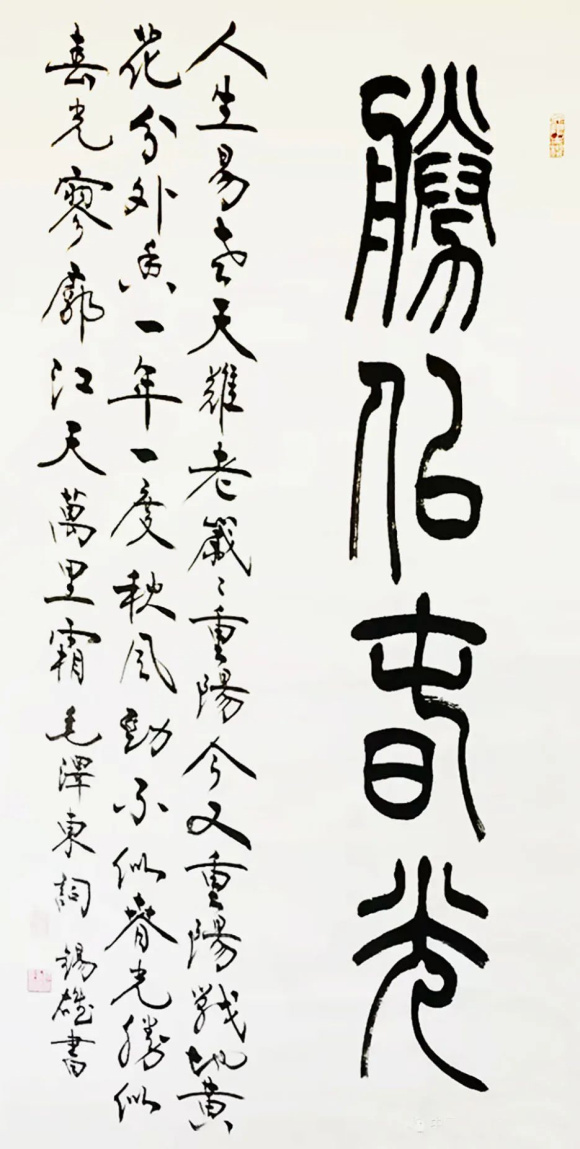 勝似春光
人生易老天難老歲〻重陽今又重陽戰地黃
花分外香一年一度秋风勁不似春光勝似
春光寥廓江天萬里霜毛澤東詞 錫雄書